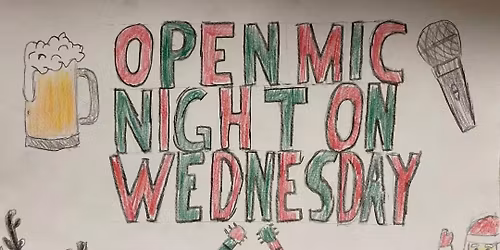 OPEN MIC
NIGHT ON
WEDNESDAY